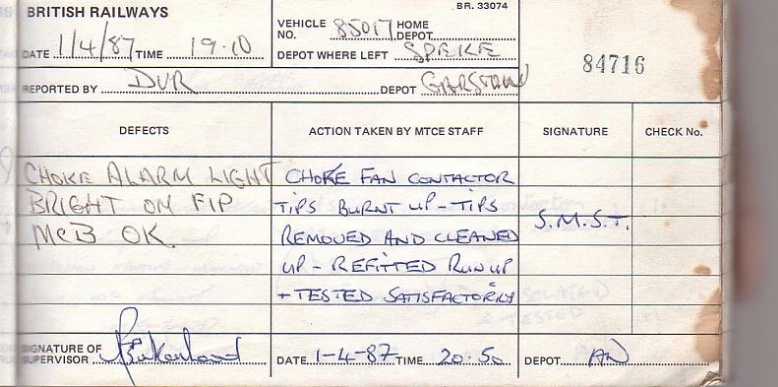 BRITISH RAILWAYS
BR. 33074
VEHICLE NO. 85017 HOME DEPOT
DATE 1/4/87 TIME 19.10
DEPOT WHERE LEFT SPEKE
84716
REPORTED BY DVR DEPOT
DEFECTS ACTION TAKEN BY MTCE STAFF SIGNATURE CHECK No.
CHOKE ALARM LIGHT CHOKE FAN CONTACTOR
BRIGHT ON FIP TIPS BURNT UP - TIPS
S.M.S.T.
MCB OK. REMOVED AND CLEANED
UP - REFITTED RUN UP
+ TESTED SATISFACTORILY
SIGNATURE OF SUPERVISOR DATE 1-4-87 TIME 20.50 DEPOT AN